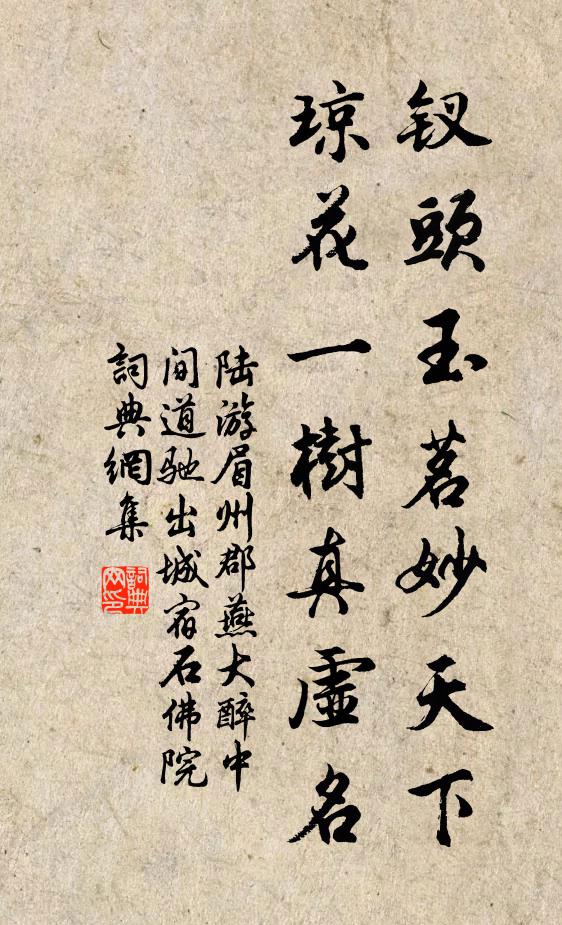 钗頭玉茗妙天下
琼花一樹真虛名
陆游眉州郡燕大醉中
间道驰出城宿石佛院
詞典網集
詞典
网印